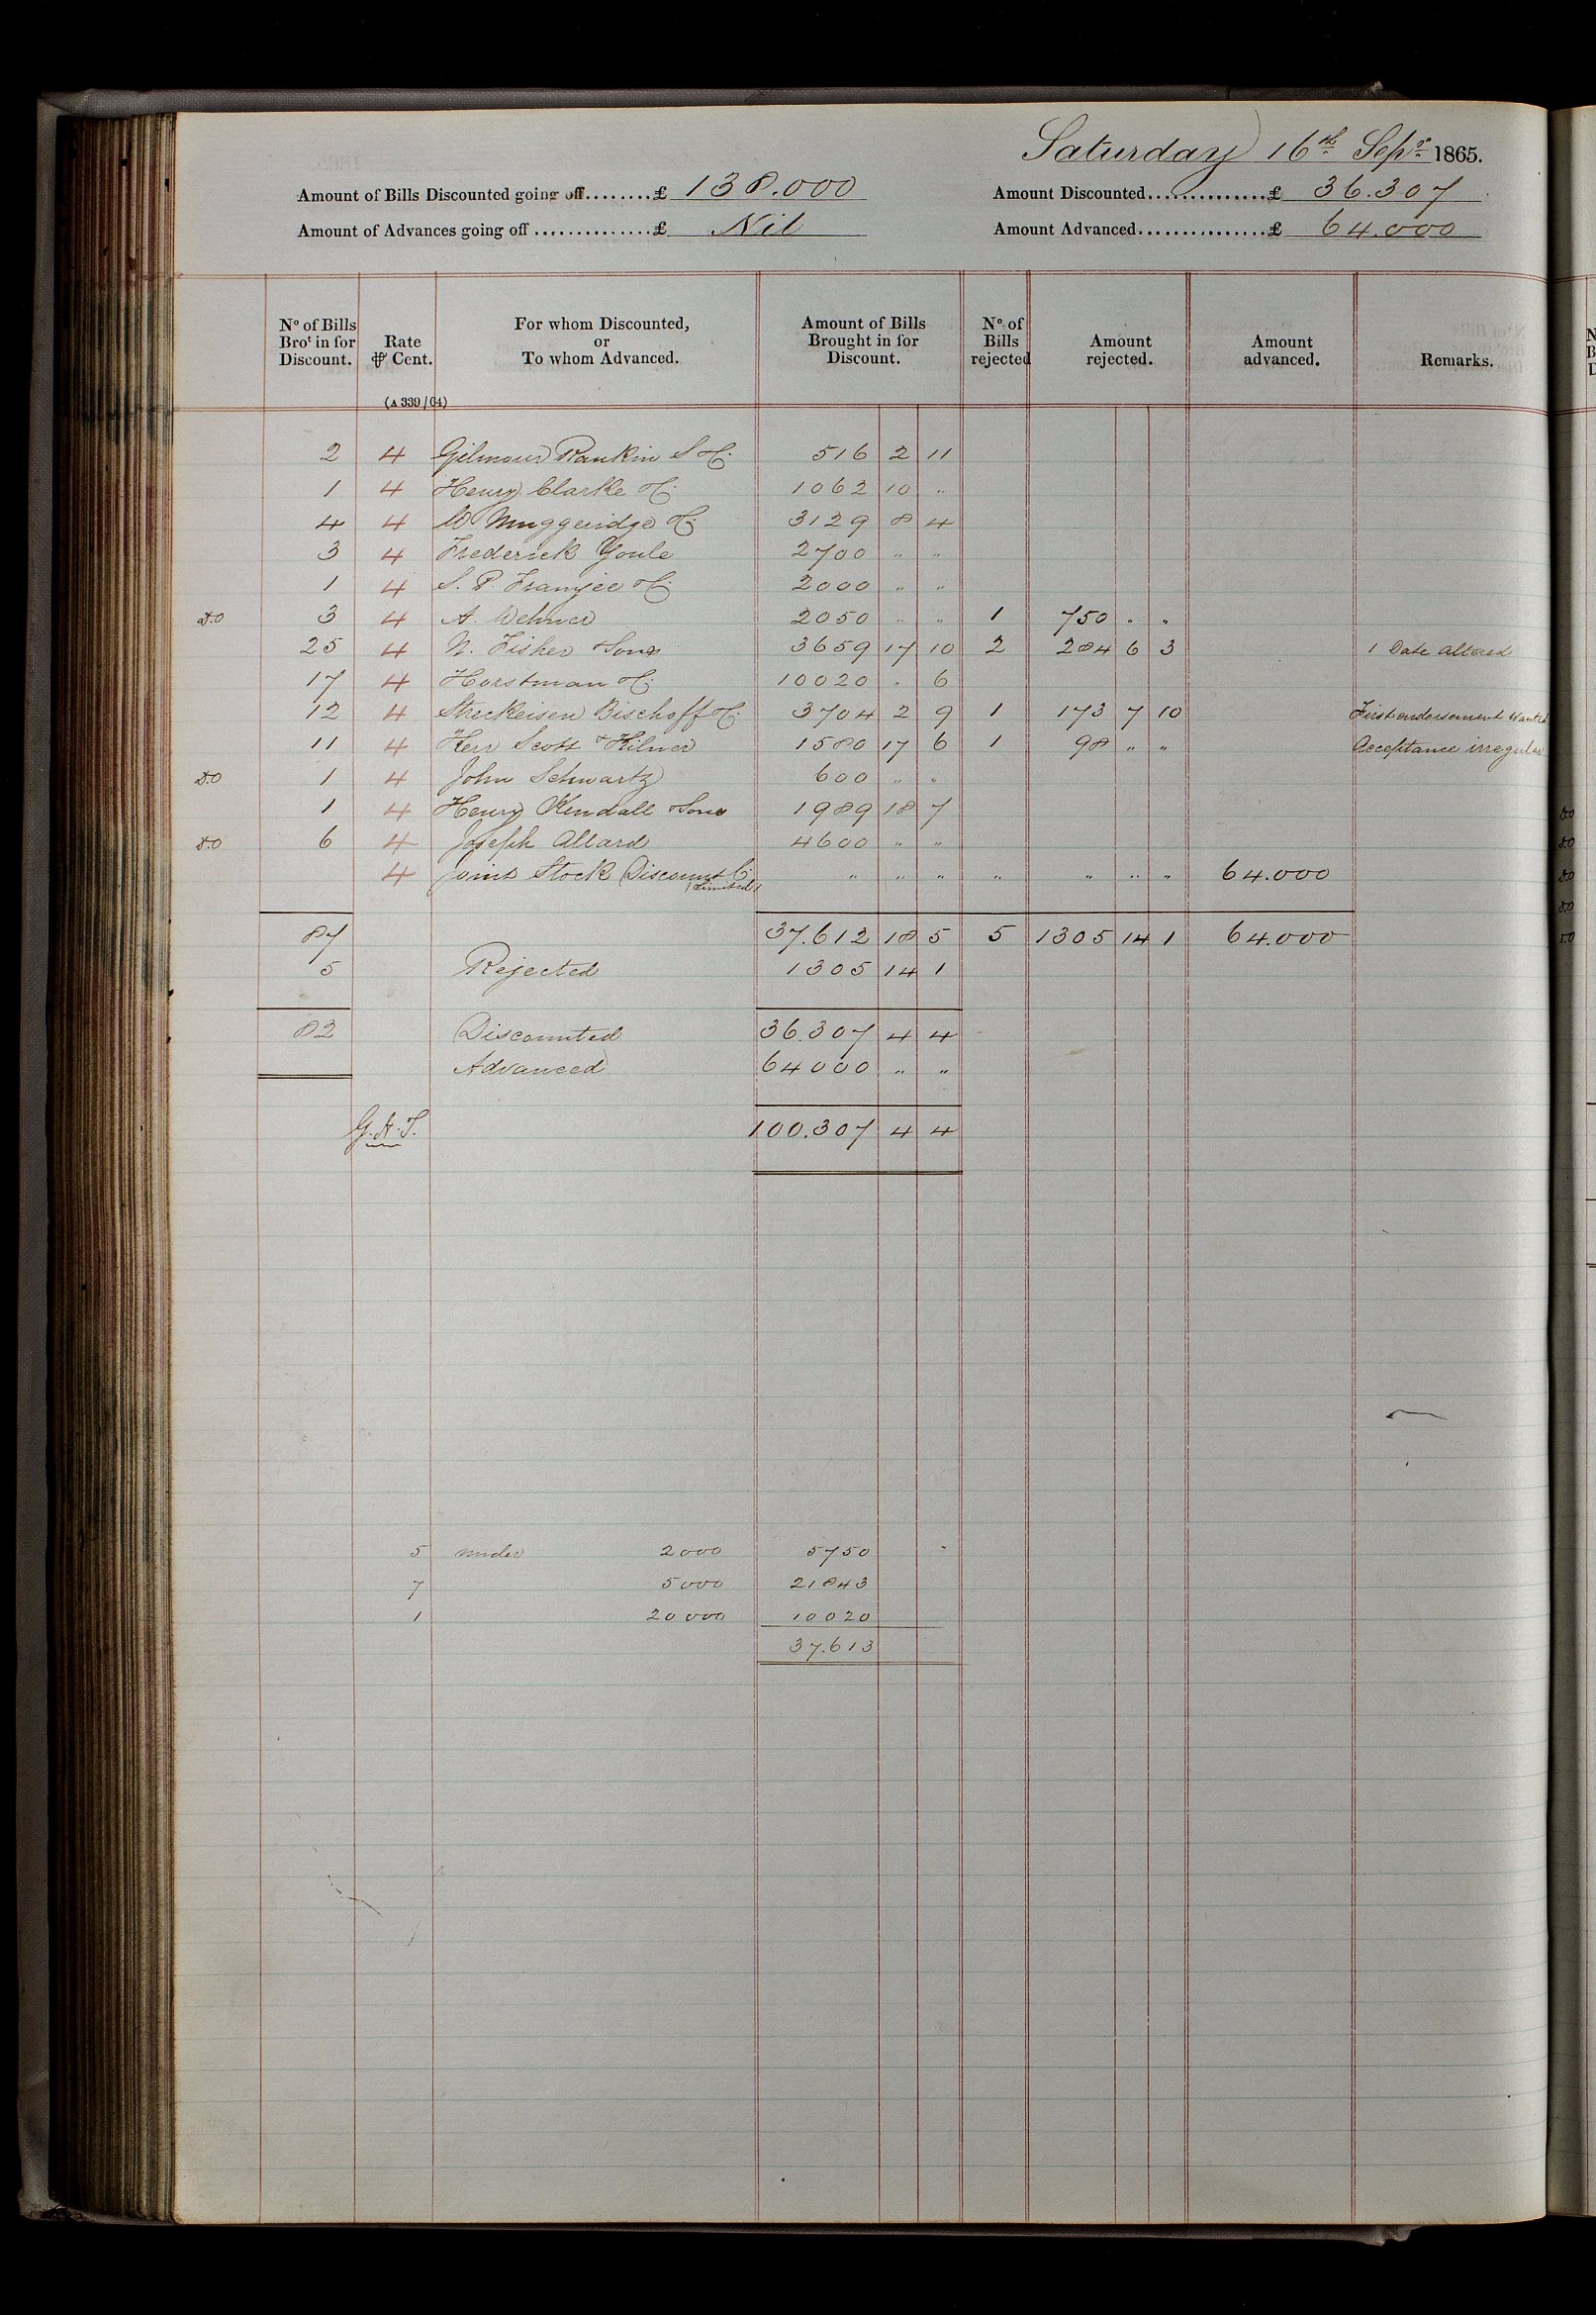 Saturday 16th Sepr 1865.
Amount of Bills Discounted going off........£ 138.000 Amount Discounted...............£ 36.307
Amount of Advances going off...............£ Nil Amount Advanced................£ 64.000
No of Bills Brot in for Discount. Rate ⅌ Cent. For whom Discounted, or To whom Advanced. Amount of Bills Brought in for Discount. No of Bills rejected Amount rejected. Amount advanced. Remarks.
(A 339/64)
2 4 Gilmour Rankin S & Co. 516 2 11
1 4 Henry Clarke & Co. 1062 10 "
4 4 W Muggeridge & Co. 3129 8 4
3 4 Frederick Youle 2700 " "
1 4 S. P. Framjee & Co. 2000 " "
3 4 A. Wehner 2050 " " 1 750 " "
25 4 N. Fisher & Sons 3659 17 10 2 284 6 3 1 Date altered
17 4 Horstman & Co. 10020 " 6
12 4 Streckeisen Bischoff & Co. 3704 2 9 1 173 7 10 First endorsement Wanted
11 4 Kerr Scott & Kilner 1580 17 6 1 98 " " Acceptance irregular
1 4 John Schwartz 600 " "
1 4 Henry Kendall & Sons 1989 18 7
6 4 Joseph Allard 4600 " "
4 Joint Stock Discount Co. " " " " " " " 64.000
(Limited)
87 37.612 18 5 5 1305 14 1 64.000
5 Rejected 1305 14 1
82 Discounted 36.307 4 4
Advanced 64000 " "
100.307 4 4
5 under 2000 5750
7 5000 21843
1 20000 10020
37.613